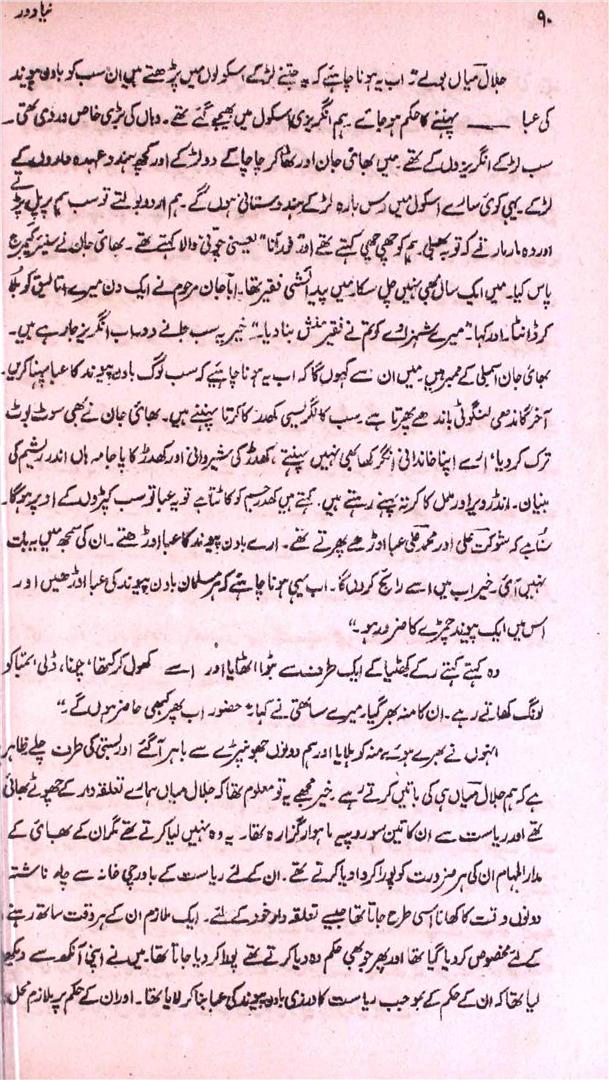 ۹۰
نیا دور
جلال میاں بولے "اب یہ ہونا چاہئے کہ یہ جتنے لڑکے اسکولوں میں پڑھتے ہیں ان سب کو باون پیوند
کی عبا ــــ پہننے کا حکم ہو جائے۔ ہم انگریزی اسکول میں بھیجے گئے تھے۔ وہاں کی بڑی خاص وردی تھی۔
سب لڑکے انگریزوں کے تھے۔ میں بھائی جان اور ٹھاکر چاچا کے دو لڑکے اور کچھ ہندو عہدہ داروں کے
لڑکے۔ یہی کوئی سارے اسکول میں دس بارہ لڑکے ہندوستانی ہوں گے۔ ہم اردو بولتے تو سب ہم پر پل پڑتے
اور وہ مار مارتے کہ توبہ بھلی۔ ہم کو چھی چھی کہتے تھے اور یعنی جوتی والا کہتے تھے۔ بھائی جان نے سینئر کیمبرج
پاس کیا۔ میں ایک سال بھی نہیں چل سکا۔ میں پیدائشی فقیر تھا۔ ابا جان مرحوم نے ایک دن میرے اتالیق کو بلا
کر ڈانٹا۔ اور کہا "میرے شہزادے کو تم نے فقیر منش بنا دیا۔" خیر یہ سب جانے دو۔ اب انگریز جا رہے ہیں۔
بھائی جان اسمبلی کے ممبر ہیں میں ان سے کہوں گا کہ اب یہ ہونا چاہئے کہ سب لوگ باون پیوند کا عبا پہنا کریں۔
آخر گاندھی لنگوٹی باندھے پھرتا ہے۔ سب کانگریسی کھدر کا کرتا پہنتے ہیں۔ بھائی جان نے بھی سوٹ بوٹ
ترک کر دیا، ارے اپنا خاندانی انگرکھا بھی نہیں پہنتے، کھدڑ کی شیروانی اور کھدڑ کا پاجامہ ہاں اندر ریشم کی
بنیان۔ انڈرویر اور ململ کا کرتہ پہنے رہتے ہیں۔ کہتے ہیں کھدر جسم کو کاٹتا ہے تو یہ عبا تو سب کپڑوں کے اوپر ہوگا۔
سنا ہے کہ شوکت علی اور محمد علی عبا اوڑھے پھرتے تھے۔ ارے باون پیوند کا عبا اوڑھتے۔ ان کی سمجھ میں یہ بات
نہیں آئی۔ خیر اب میں اسے رائج کروں گا۔ اب یہی ہونا چاہئے کہ ہر مسلمان باون پیوند کی عبا اوڑھیں اور
اس میں ایک پیوند چمڑے کا ضرور ہو۔"
وہ کہتے کہتے رکے کھٹیا کے ایک طرف سے بٹوا اٹھایا اور اسے کھول کر کتھا، چونا، ڈلی، تمباکو
لونگ کھاتے رہے۔ ان کا منہ بھر گیا۔ میرے ساتھی نے کہا "حضور اب پھر کبھی حاضر ہوں گے۔"
انہوں نے بھرے ہوئے منہ کو ہلایا اور ہم دونوں جھونپڑے سے باہر آ گئے اور بستی کی طرف چلے ظاہر
ہے کہ ہم جلال میاں ہی کی باتیں کرتے رہے۔ خیر مجھے یہ تو معلوم تھا کہ جلال میاں ہمارے تعلقہ دار کے چھوٹے بھائی
تھے اور ریاست سے ان کا تین سو روپیہ ماہوار گزارہ تھا۔ یہ وہ نہیں لیا کرتے تھے مگر ان کے بھائی کے
مدارالمہام ان کی ہر ضرورت کو پورا کروا دیا کرتے تھے۔ ان کے لئے ریاست کے باورچی خانہ سے چاء ناشتہ
دونوں وقت کا کھانا اسی طرح جاتا تھا جیسے تعلقہ دار خود کے لئے۔ ایک ملازم ان کے ہر وقت ساتھ رہنے
کے لئے مخصوص کر دیا گیا تھا اور پھر جو بھی حکم وہ دیا کرتے تھے پورا کر دیا جاتا تھا۔ میں نے اپنی آنکھ سے دیکھ
لیا تھا کہ ان کے حکم کے بموجب ریاست کا درزی باون پیوند کی عبا بنا کر لایا تھا۔ اور ان کے حکم پر ملازم محل